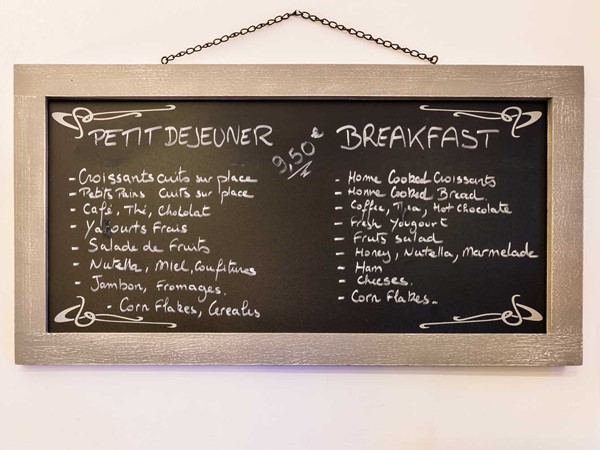 PETIT DEJEUNER
- Croissants cuits sur place
- Petits Pains cuits sur place
- Café, Thé, Chocolat
- Yaourts Frais
- Salade de Fruits
- Nutella, Miel, Confitures
- Jambon, Fromages.
- Corn Flakes, Cereales
9,50€
BREAKFAST
- Home Cooked Croissants
- Home Cooked Bread.
- Coffee, Tea, Hot Chocolate
- Fresh Yougourt
- Fruits salad
- Honey, Nutella, Marmelade
- Ham
- Cheeses.
- Corn Flakes.